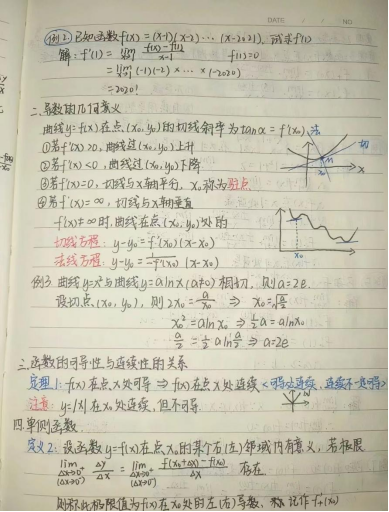 DATE / / NO
例2. 已知函数f(x)=(x-1)(x-2)…(x-2021). 试求f'(1)
解: f'(1) = lim x→1 f(x)-f(1) / x-1   f(1)=0
= lim x→1 (-1)(-2)×…×(-2020)
= 2020!
二.导数的几何意义
曲线y=f(x)在点(x₀,y₀)的切线斜率为tanα=f'(x₀). 法
①若f'(x₀)>0, 曲线过(x₀,y₀)上升 切
②若f'(x₀)<0, 曲线过(x₀,y₀)下降
③若f'(x₀)=0, 切线与x轴平行, x₀称为驻点
④若f'(x₀)=∞, 切线与x轴垂直
f'(x₀)≠∞时, 曲线在点(x₀,y₀)处的
切线方程: y-y₀=f'(x₀)(x-x₀)
法线方程: y-y₀= -1/f'(x₀) (x-x₀)
例3. 曲线y=x²与曲线y=alnx(a≠0)相切, 则a=2e.
设切点(x₀,y₀), 则2x₀=a/x₀ ⇒ x₀=√(a/2)
x₀²=alnx₀ ⇒ ½a=alnx₀
a/2=½aln a/2 ⇒ a=2e
三.函数的可导性与连续性的关系
定理1: f(x)在点x处可导 ⇒ f(x)在点x处连续 <可导必连续, 连续不一定可导>
注意: y=|x|在x₀处连续, 但不可导.
四.单侧函数
定义2: 设函数y=f(x)在点x₀的某个右(左)邻域内有意义, 若极限
lim Δx→0⁺ (Δx→0⁻) Δy/Δx = lim Δx→0⁺ (Δx→0⁻) f(x₀+Δx)-f(x₀) / Δx 存在
则称此极限值为f(x)在x₀处的左(右)导数, 记作f'₊(x₀)